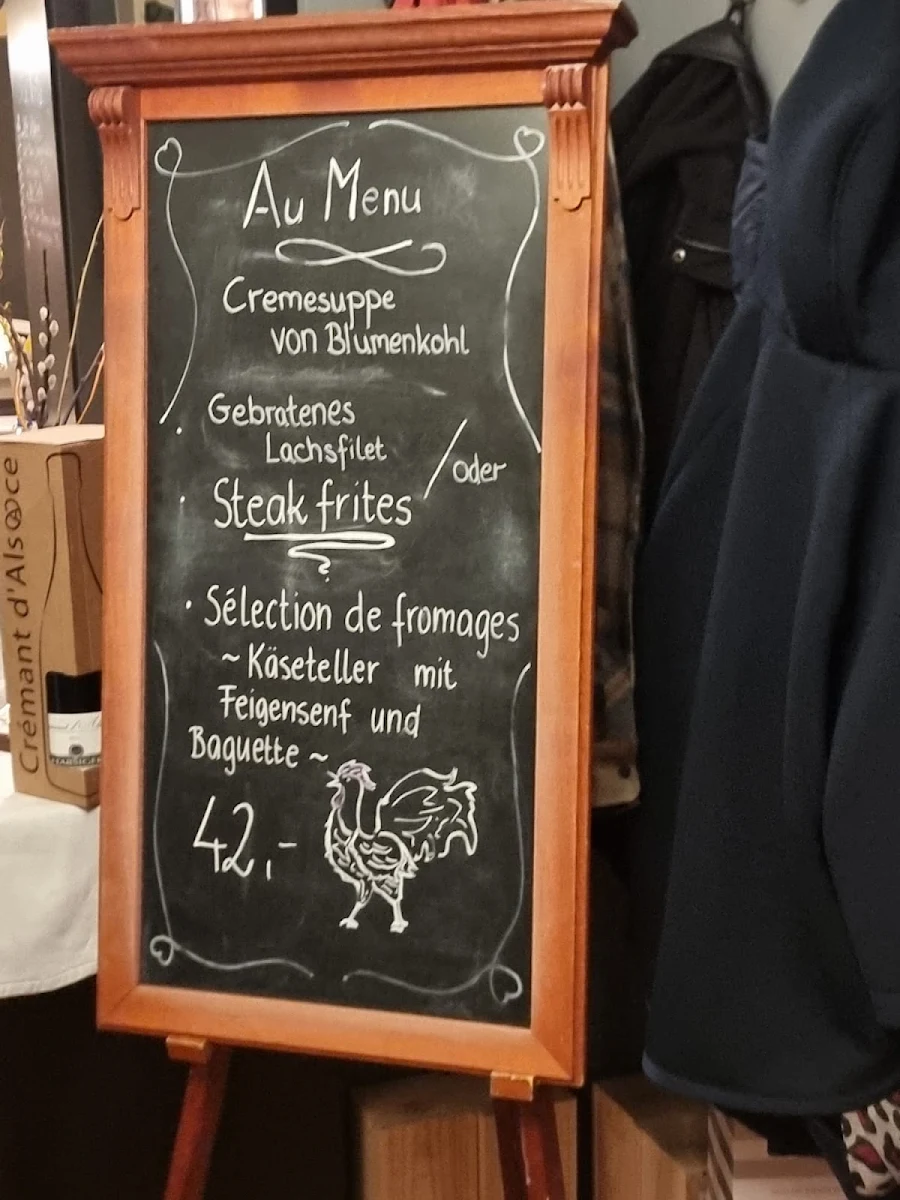 Au Menu
Cremesuppe
von Blumenkohl
Gebratenes
Lachsfilet
/ oder
Steak frites
· Sélection de fromages
~ Käseteller mit
Feigensenf und
Baguette ~
42,-
Crémant d'Alsace